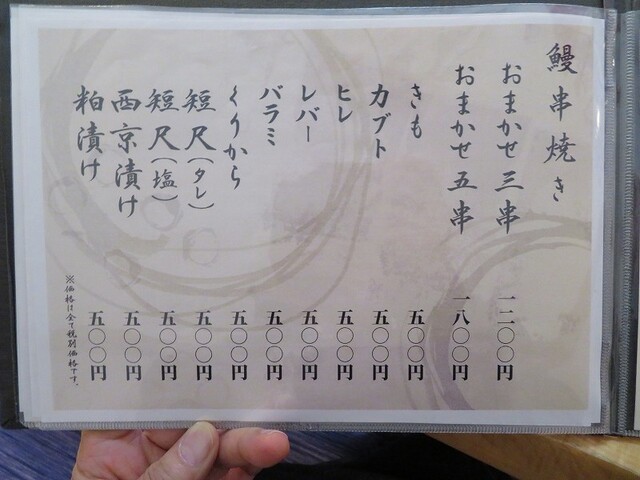 鰻串焼き
おまかせ三串 一二〇〇円
おまかせ五串 一八〇〇円
きも 五〇〇円
カブト 五〇〇円
ヒレ 五〇〇円
レバー 五〇〇円
バラミ 五〇〇円
くりから 五〇〇円
短尺(タレ) 五〇〇円
短尺(塩) 五〇〇円
西京漬け 五〇〇円
粕漬け 五〇〇円
※価格は全て税別価格です。